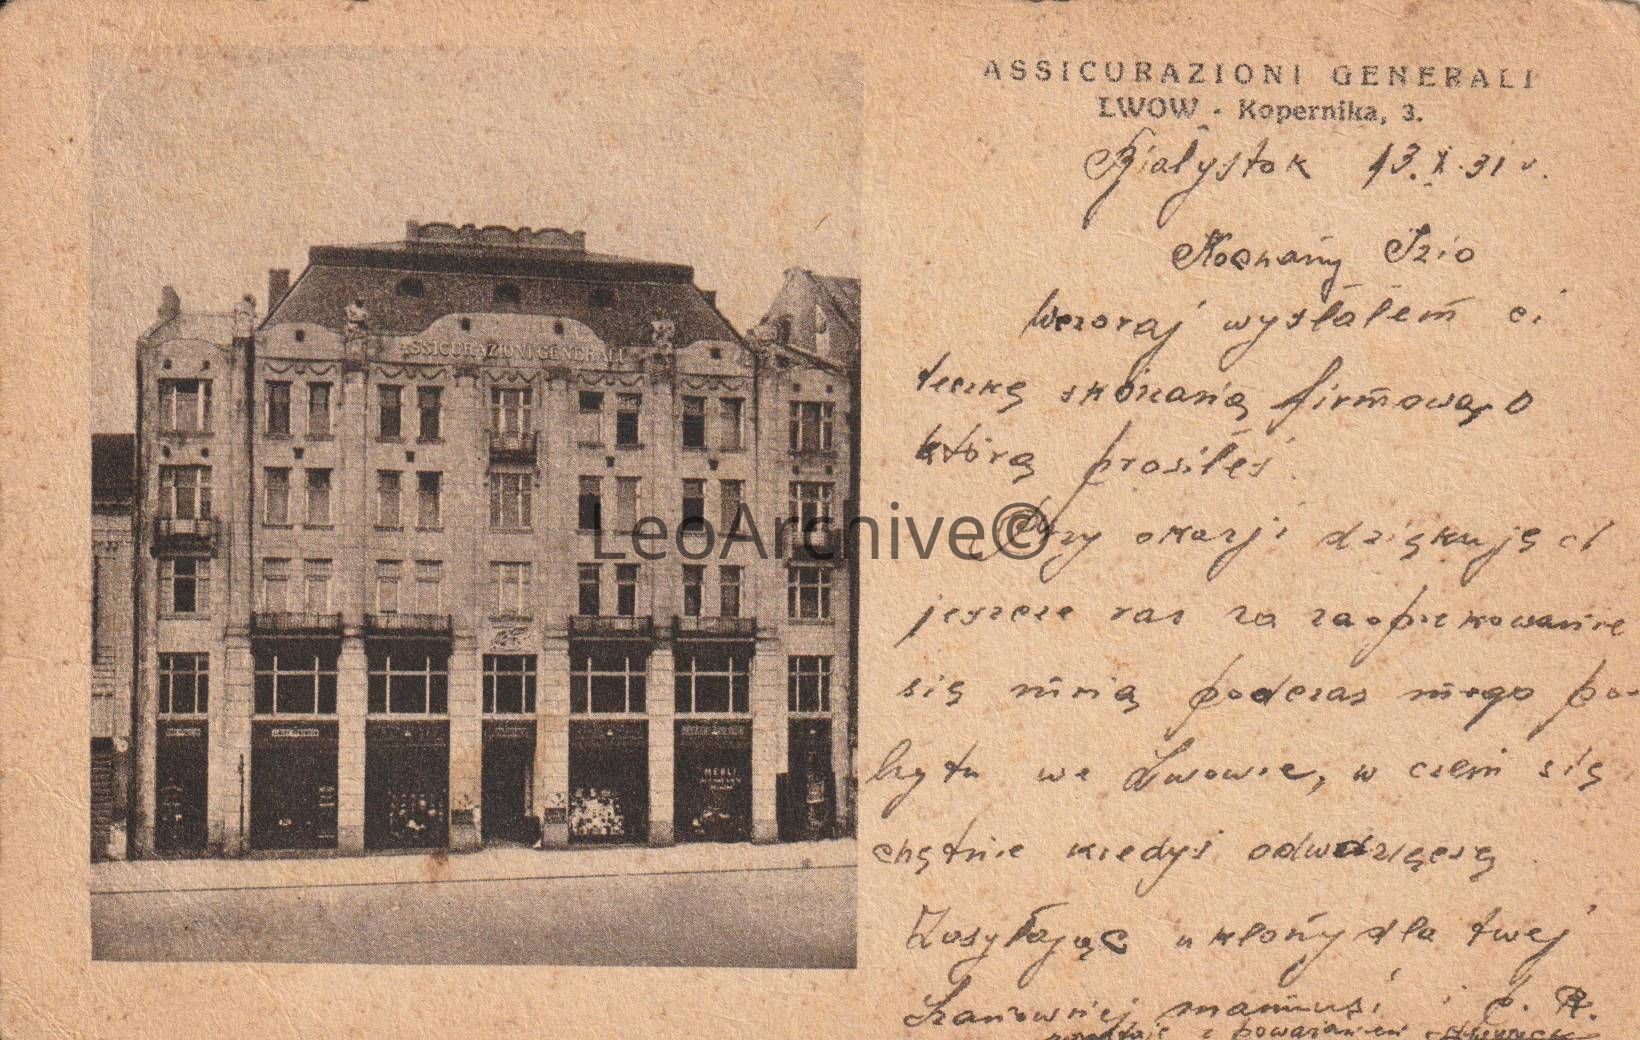 ASSICURAZIONI GENERALI
LWOW - Kopernika, 3.
Białystok 13.X.31 r.
Kochany Izio
Wczoraj wysłałem ci
teczkę skórzaną firmową, o
którą prosiłeś.
Przy okazji dziękuję ci
jeszcze raz za zaopiekowanie
się mną podczas mego po-
bytu we Lwowie, w czem się
chętnie kiedyś odwdzięczę.
Zasyłając ukłony dla twej
Szanownej mamusi i p. R.
z poważaniem
ASSICURAZIONI GENERALI
MEBLI
LeoArchive©